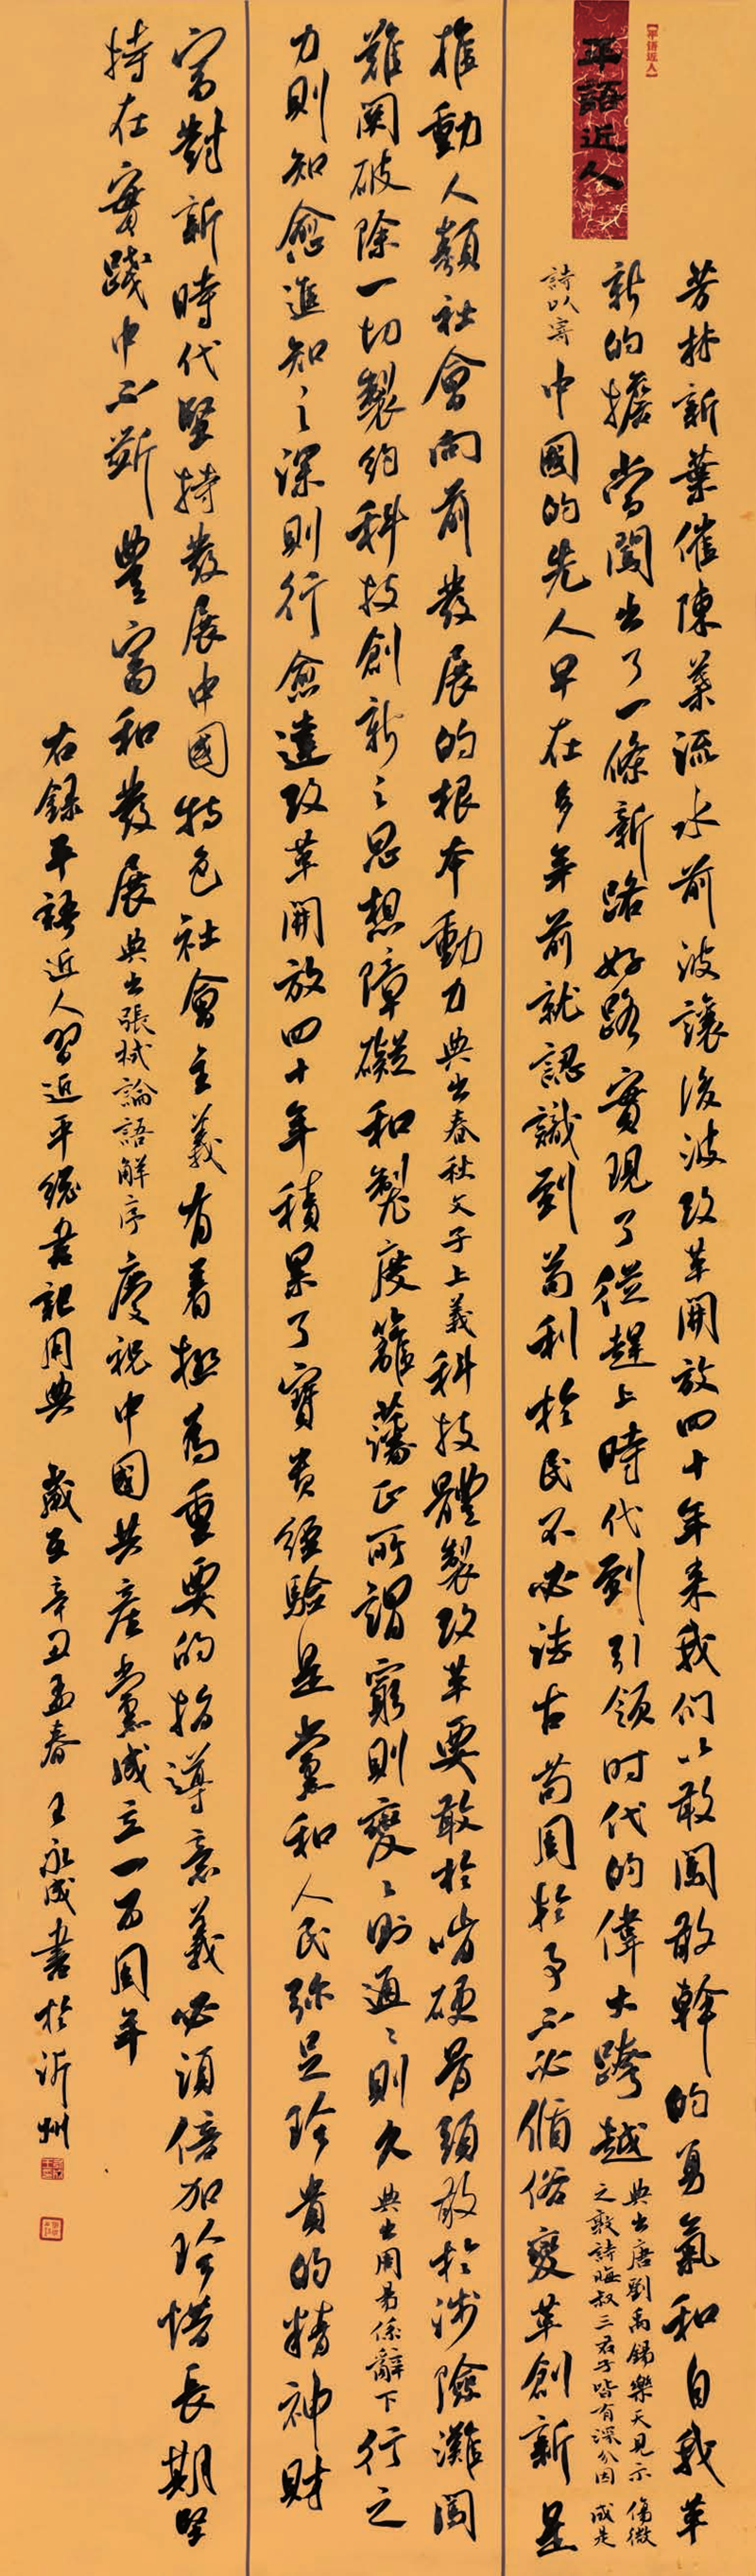 【平语近人】
平語近人
芳林新葉催陳葉流水前波讓後波改革開放四十年来我们以敢闖敢幹的勇氣和自我革
新的擔當闖出了一條新路好路實現了從趕上時代到引領时代的偉大跨越
典出唐劉禹錫樂天見示傷微
之敦詩晦叔三君子皆有深分因成是
詩以寄中國的先人早在多年前就認識到苟利於民不必法古苟周於事不必循俗變革創新是
推動人類社會向前發展的根本動力典出春秋文子上義科技體製改革要敢於啃硬骨頭敢於涉險灘闖
難関破除一切製約科技創新之思想障礙和製度籬藩正所謂窮則變〻則通〻則久典出周易係辭下行之
力則知愈進知之深則行愈達改革開放四十年積累了寶贵經驗是黨和人民弥足珍貴的精神財
富對新時代堅持發展中國特色社會主義有着極為重要的指導意義必須倍加珍惜長期堅
持在實踐中不斷豐富和發展典出張栻論語解序慶祝中國共產黨成立一百周年
右録平語近人習近平總書記用典 歲辛丑孟春王永成書於沂州